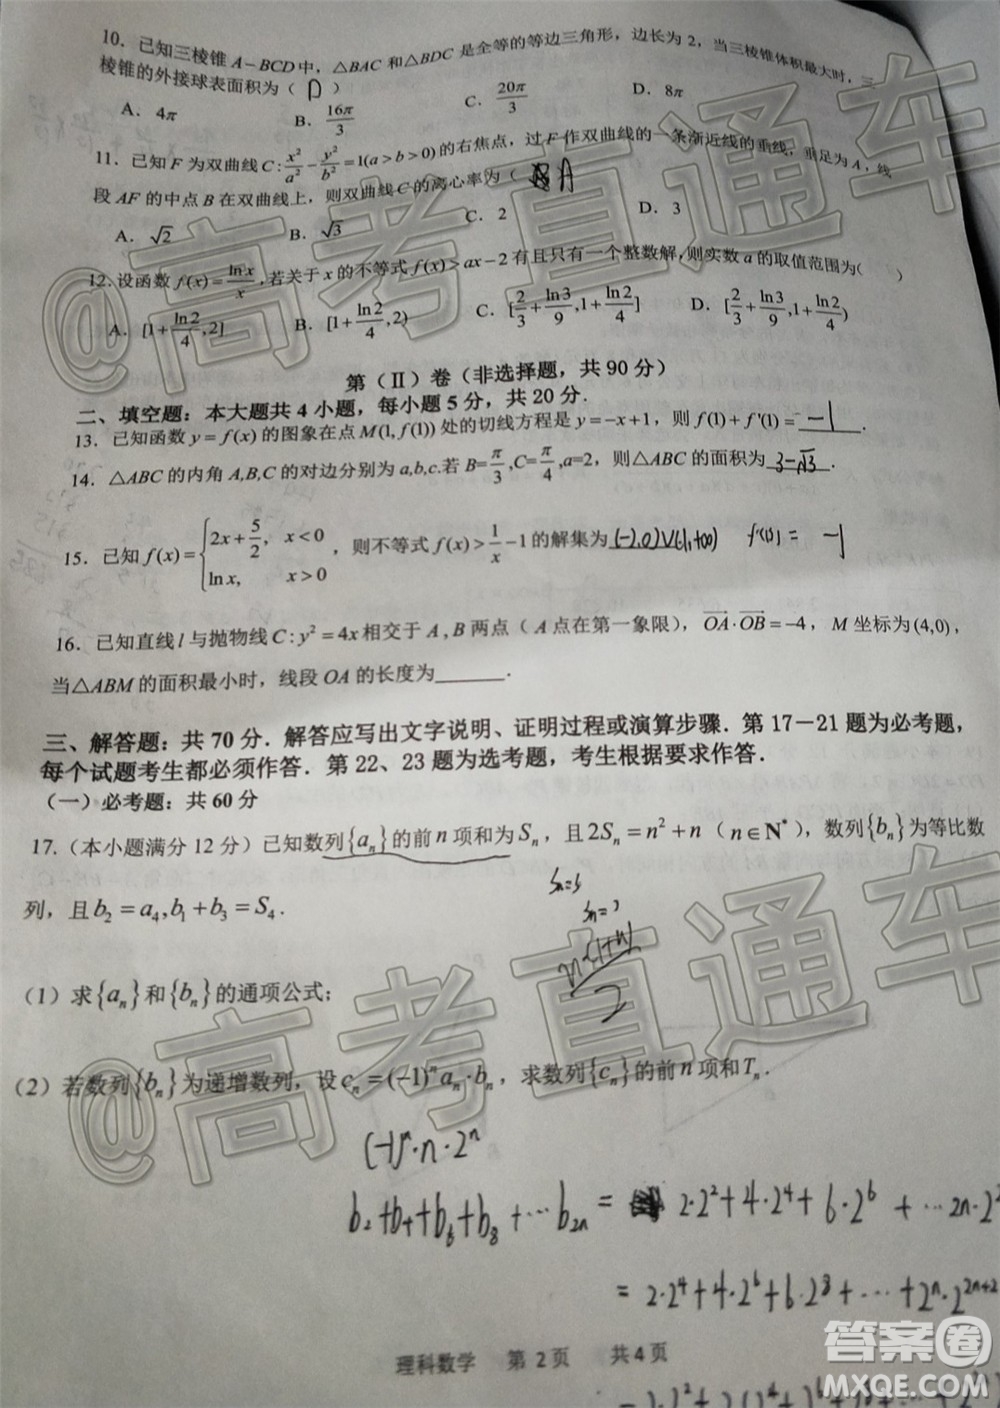 10. 已知三棱锥 A-BCD 中，△BAC 和△BDC 是全等的等边三角形，边长为 2，当三棱锥体积最大时，三
棱锥的外接球表面积为（ D ）
A. 4π B. 16π/3 C. 20π/3 D. 8π
11. 已知 F 为双曲线 C: x²/a² - y²/b² = 1(a>b>0) 的右焦点，过 F 作双曲线的一条渐近线的垂线，垂足为 A，线
段 AF 的中点 B 在双曲线上，则双曲线 C 的离心率为（ A
A. √2 B. √3 C. 2 D. 3
12.设函数 f(x)= lnx/x ,若关于 x 的不等式 f(x)>ax-2 有且只有一个整数解,则实数 a 的取值范围为( )
A. [1+ln2/4,2] B. [1+ln2/4,2) C. [2/3+ln3/9,1+ln2/4] D. [2/3+ln3/9,1+ln2/4)
第（Ⅱ）卷（非选择题，共 90 分）
二、填空题：本大题共 4 小题，每小题 5 分，共 20 分．
13. 已知函数 y=f(x) 的图象在点 M(1,f(1)) 处的切线方程是 y=-x+1，则 f(1)+f'(1)= -1 .
14. △ABC 的内角 A,B,C 的对边分别为 a,b,c.若 B=π/3 ,C=π/4 ,a=2，则△ABC 的面积为 3-√3 .
15. 已知 f(x)={2x+5/2, x<0 ，则不等式 f(x)>1/x -1 的解集为 (-2,0)∪(1,+∞) f'(1) = -1
lnx, x>0
16. 已知直线 l 与抛物线 C: y²=4x 相交于 A,B 两点（A 点在第一象限），OA·OB=-4，M 坐标为 (4,0)，
当△ABM 的面积最小时，线段 OA 的长度为______.
三、解答题：共 70 分．解答应写出文字说明、证明过程或演算步骤．第 17－21 题为必考题，
每个试题考生都必须作答．第 22、23 题为选考题，考生根据要求作答．
（一）必考题：共 60 分
17.（本小题满分 12 分）已知数列{aₙ}的前 n 项和为 Sₙ，且 2Sₙ=n²+n（n∈N*），数列{bₙ}为等比数
列，且 b₂=a₄,b₁+b₃=S₄.
（1）求{aₙ}和{bₙ}的通项公式;
（2）若数列{bₙ}为递增数列，设 cₙ=(-1)ⁿaₙ·bₙ，求数列{cₙ}的前 n 项和Tₙ.
(-1)ⁿ·n·2ⁿ
b₂+b₄+b₆+b₈+…b₂ₙ = 2·2²+4·2⁴+6·2⁶+…2n·2
= 2·2⁴+4·2⁶+6·2⁸+…+2n·2²ⁿ⁺²
理科数学 第 2 页 共 4 页
@高考直通车
@高考直通车
答案圈
MXQE.COM